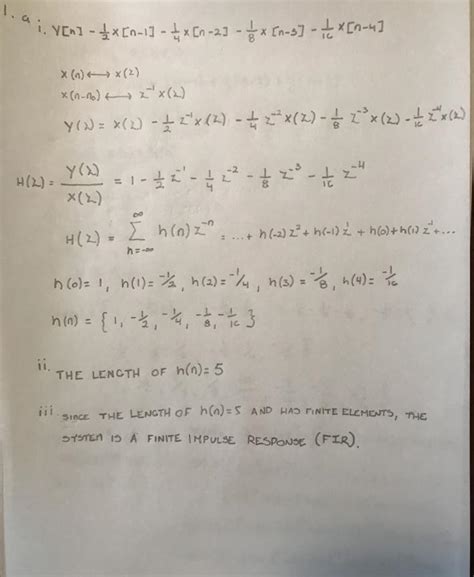 1. a
i. Y[n] - 1/2 x[n-1] - 1/4 x[n-2] - 1/8 x[n-3] - 1/16 x[n-4]
x(n) ⟷ x(z)
x(n-n₀) ⟷ z⁻¹ x(z)
Y(z) = x(z) - 1/2 z⁻¹ x(z) - 1/4 z⁻² x(z) - 1/8 z⁻³ x(z) - 1/16 z⁻⁴ x(z)
H(z) = Y(z)/X(z) = 1 - 1/2 z⁻¹ - 1/4 z⁻² - 1/8 z⁻³ - 1/16 z⁻⁴
H(z) = ∑_{n=-∞}^{∞} h(n) z⁻ⁿ = ...+ h(-2) z² + h(-1) z¹ + h(0) + h(1) z⁻¹ +...
h(0) = 1, h(1) = -1/2, h(2) = -1/4, h(3) = -1/8, h(4) = -1/16
h(n) = {1, -1/2, -1/4, -1/8, -1/16}
ii. THE LENGTH OF h(n) = 5
iii SINCE THE LENGTH OF h(n) = 5 AND HAS FINITE ELEMENTS, THE
SYSTEM IS A FINITE IMPULSE RESPONSE (FIR).